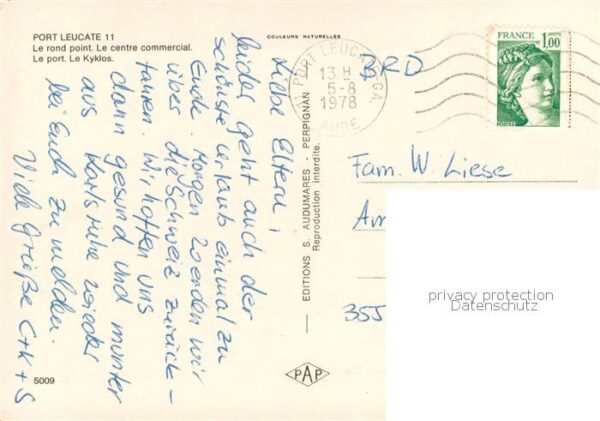 PORT LEUCATE 11
Le rond point. Le centre commercial.
Le port. Le Kyklos.
COULEURS NATURELLES
Liebe Eltern,
leider geht auch der
schönste Urlaub einmal zu
Ende. Morgen werden wir
über die Schweiz zurück-
fahren. Wir hoffen uns
dann gesund und munter
aus Karlsruhe wieder
bei Euch zu melden.
Viele Grüße C+K+S
5009
EDITIONS S. AUDUMARES - PERPIGNAN
Reproduction interdite.
PAP
PORT LEUCATE
13 H
5-8
1978
AUDE
FRANCE
1,00
BRD
Fam. W. Liese
Am
355
privacy protection
Datenschutz